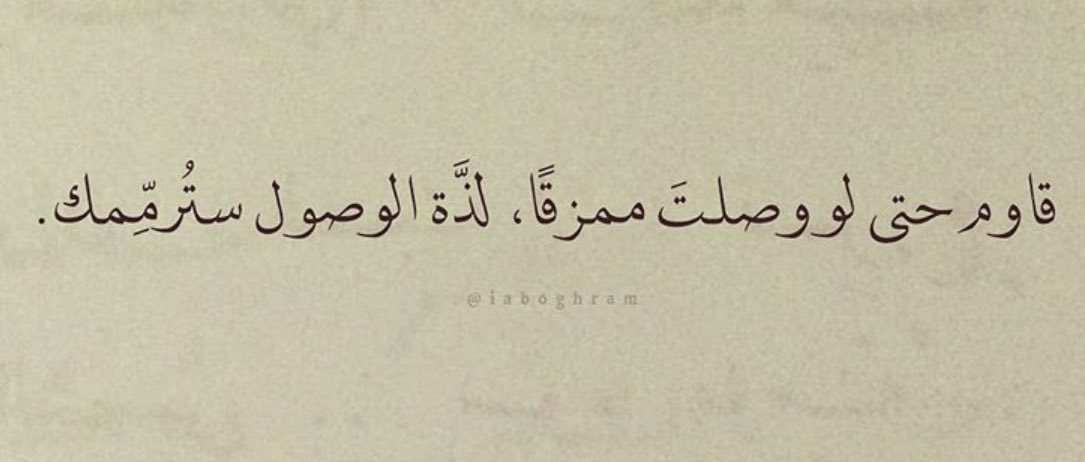 قاوم حتى لو وصلتَ ممزقًا، لذَّة الوصول ستُرمّمِك.
@iaboghram